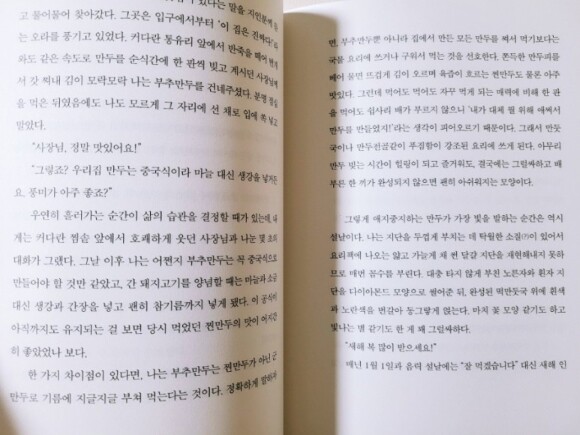 고 물어물어 찾아갔다. 그곳은 입구에서부터 '이 집은 진짜다'라
는 오라를 풍기고 있었다. 커다란 통유리 앞에서 만죽을 떼어
화도 같은 속도로 만두를 순식간에 한 판씩 빚고 계시던 사장님께
서 갓 쪄내 김이 모락모락 나는 부추만두를 건네주셨다. 분명 점심
을 먹은 뒤였음에도 나도 모르게 그 자리에 선 채로 입에 쏙 넣고
말았다.
"사장님, 정말 맛있어요!"
"그렇죠? 우리집 만두는 중국식이라 마늘 대신 생강을 넣거든
요. 풍미가 아주 좋죠?"
우연히 흘러가는 순간이 삶의 습관을 결정할 때가 있는데, 내
게는 커다란 찜솥 앞에서 호쾌하게 웃던 사장님과 나눈 몇 초의
대화가 그랬다. 그날 이후 나는 어쩐지 부추만두는 꼭 중국식으로
만들어야 할 것만 같았고, 간 돼지고기를 양념할 때는 마늘과 소금
대신 생강과 간장을 넣고 괜히 참기름까지 넣게 됐다. 이 공식이
아직까지도 유지되는 걸 보면 당시 먹었던 찐만두의 맛이 어지간
히 좋았었나 보다.
한 가지 차이점이 있다면, 나는 부추만두를 찐만두가 아닌 군
만두로 기름에 지글지글 부쳐 먹는다는 것이다. 정확하게 말하자
면, 부추만두뿐 아니라 집에서 만든 모든 만두를 쪄서 먹기보다는
국물 요리에 쓰거나 구워서 먹는 것을 선호한다. 쫀득한 만두피를
베어 물면 뜨겁게 김이 오르며 육즙이 흐르는 찐만두도 물론 아주
맛있다. 그런데 먹어도 먹어도 자꾸 먹게 되는 매력에 비해 한 판
을 먹어도 쉽사리 배가 부르지 않으니 '내가 대체 뭘 위해 애써서
만두를 만들었지!'라는 생각이 피어오르기 때문이다. 그래서 만둣
국이나 만두전골같이 푸짐함이 강조된 요리에 쓰게 된다. 아무리
만두 빚는 시간이 힐링이 되고 즐거워도, 결국에는 그럴싸하고 배
부른 한 끼가 완성되지 않으면 괜히 아쉬워지는 모양이다.
그렇게 애지중지하는 만두가 가장 빛을 발하는 순간은 역시
설날이다. 나는 지단을 두껍게 부치는 데 탁월한 소질(?)이 있어서
요리책에 나오는 얇고 가늘게 채 썬 달걀 지단을 재현해내지 못하
므로 매번 꼼수를 부린다. 대충 타지 않게 부친 노른자와 흰자 지
단을 다이아몬드 모양으로 썰어준 뒤, 완성된 떡만둣국 위에 흰색
과 노란색을 번갈아 동그랗게 얹는다. 마치 꽃 모양 같기도 하고
빛나는 별 같기도 한 게 꽤 그럴싸하다.
"새해 복 많이 받으세요!"
매년 1월 1일과 음력 설날에는 "잘 먹겠습니다" 대신 새해 인